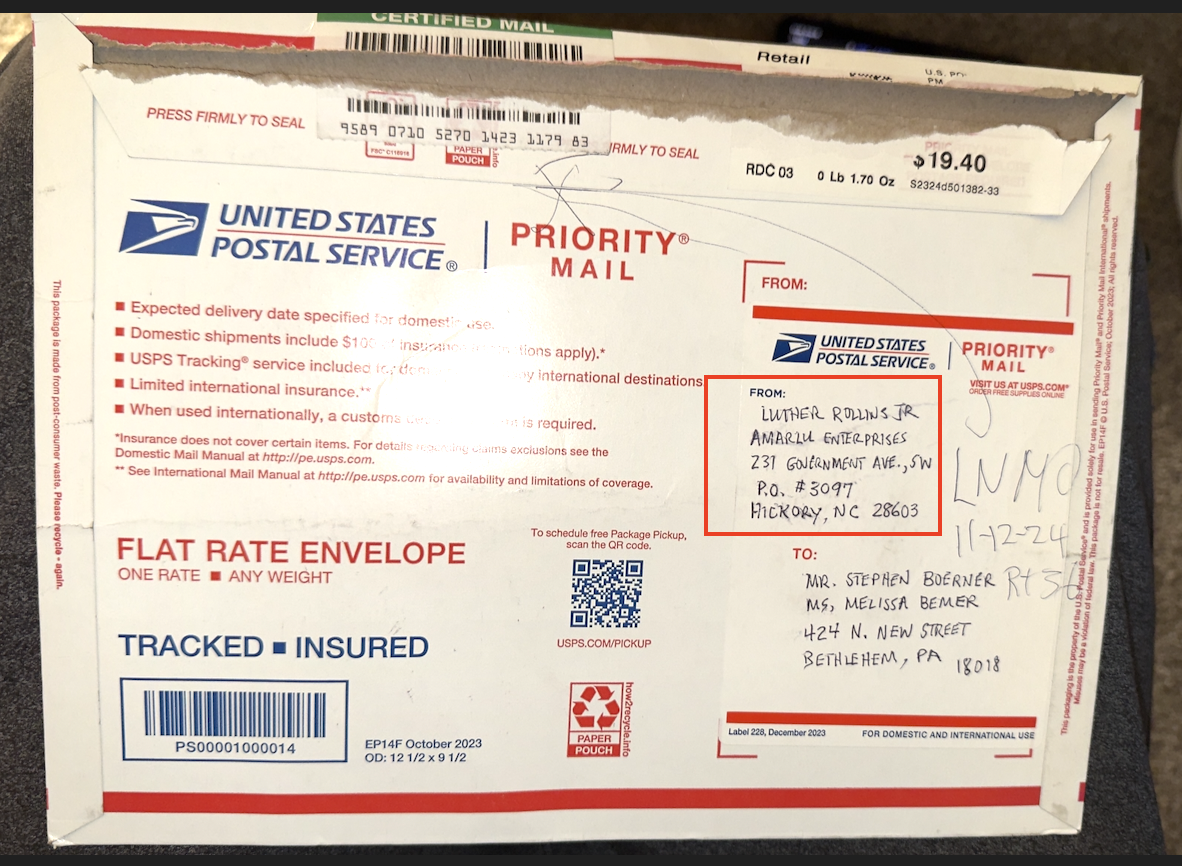 CERTIFIED MAIL
Retail
9589 0710 5270 1423 1179 83
PRESS FIRMLY TO SEAL
PAPER
POUCH
RDC 03
0 Lb 1.70 Oz
$19.40
S2324d501382-33
UNITED STATES
POSTAL SERVICE®
PRIORITY®
MAIL
Expected delivery date specified for domestic use.
Domestic shipments include $100 of insurance
USPS Tracking® service included
international destinations
Limited international insurance.**
When used internationally, a customs
is required.
*Insurance does not cover certain items. For details regarding claims exclusions see the
Domestic Mail Manual at http://pe.usps.com.
** See International Mail Manual at http://pe.usps.com for availability and limitations of coverage.
FLAT RATE ENVELOPE
ONE RATE ■ ANY WEIGHT
TRACKED ■ INSURED
PS00001000014
EP14F October 2023
OD: 12 1/2 x 9 1/2
To schedule free Package Pickup,
scan the QR code.
USPS.COM/PICKUP
how2recycle.info
PAPER
POUCH
FROM:
UNITED STATES
POSTAL SERVICE®
PRIORITY®
MAIL
VISIT US AT USPS.COM®
ORDER FREE SUPPLIES ONLINE
FROM:
LUTHER ROLLINS JR
AMARLU ENTERPRISES
231 GOVERNMENT AVE., SW
P.O. #3097
HICKORY, NC 28603
11-12-24
TO:
MR. STEPHEN BOERNER
MS, MELISSA BEMER
424 N. NEW STREET
BETHLEHEM, PA 18018
Label 228, December 2023
FOR DOMESTIC AND INTERNATIONAL USE
This package is made from post-consumer waste. Please recycle - again.
This packaging is the property of the U.S. Postal Service® and is provided solely for use in sending Priority Mail® and Priority Mail International® shipments.
Misuses may be a violation of federal law. This package is not for resale. EP14F © U.S. Postal Service; October 2023; All rights reserved.